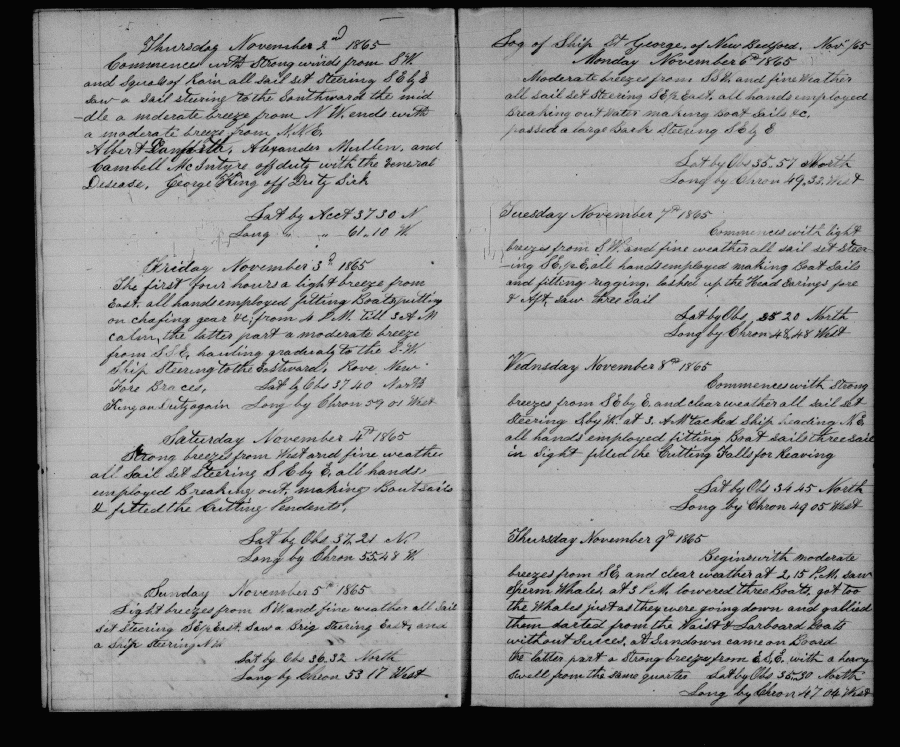 Thursday November 2d 1865
Commences with Strong winds from S.W.
and Squals of Rain all sail set Steering S E by E
Saw a Sail steering to the Southward the mid
dle a mderate breeze from N.W. ends with
a moderate breeze from N.N.E.
Albert Danforth, Alexander Mullen, and
Cambell McIntyre off duty with the veneral
Disease, George King off Duty Sick
Lat by Acct 37 30 N
Long " " 61.10 W.
Friday November 3d 1865
The first four hours a light breeze from
East. all hands employed fitting Boats, putting
on chafing gear &c, from 4 P.M. till 3 A M
calm, the latter part a moderate breeze
from S.S.E, hauling gradualy to the S.W.
Ship Steering to the Eastward, Rove New
Fore Braces, Lat by Obs 37 40 North
King on Duty again Long by Chron 59 01 West
Saturday November 4th 1865
Strong breezes from West and fine weather
all Sail Set Steering S E by E. all hands
employed Breaking out, making Boat sails
& fitted the Cutting Pendents,
Lat by Obs 37.21 N
Long by Chron 55.48 W.
Sunday November 5th 1865
Light breezes from S.W. and fine weather all Sail
set Steering SE p East, Saw a Brig steering East, and
a Ship steering
Lat by Obs 36.32 North
Long by Chron 53 17 West
Log of Ship St George, of New Bedford, Nov /65
Monday November 6th 1865
Moderate breezes from SSW. and fine weather
all sail set Steering SE p East, all hands employed
breaking out Water making Boat Sails &c.
passed a large Bark Steering S E by E
Lat by Obs 35..57 North
Long by Chron 49.33. West
Tuesday November 7th 1865
Commences with light
breezes from S.W. and fine weather all sail set Steer-
-ing SE p E, all hands employed making Boat Sails
and fitting rigging, lashed up the Head Earings fore
& Aft, Saw three Sail
Lat by Obs, 20 North
Long by Chron 48,48 West
Wednsday November 8th 1865
Commences with Strong
breezes from S E by E. and clear weather all sail set
Steering S by W. at 3. A M tacked Ship heading N.E.
all hands employed fitting Boat sails three sail
in Sight fitted the Cutting Falls for Reaving
Lat by Obs 34 45 North
Long by Chron 49 05 West
Thursday November 9th 1865
Begins with moderate
breezes from SE, and clear weather at 2,15 P.M. saw
Sperm Whales, at 3 P.M. lowered three Boats, got too
the Whales just as they were going down and gallied
them darted from the Waist & Larboard Boats
without Succes. At Sundown came on Board
the latter part a Strong breeze from E.S.E. with a heavy
Swell from the same quarter Lat by Obs 35..30 North
Long by Chron 47 04 West